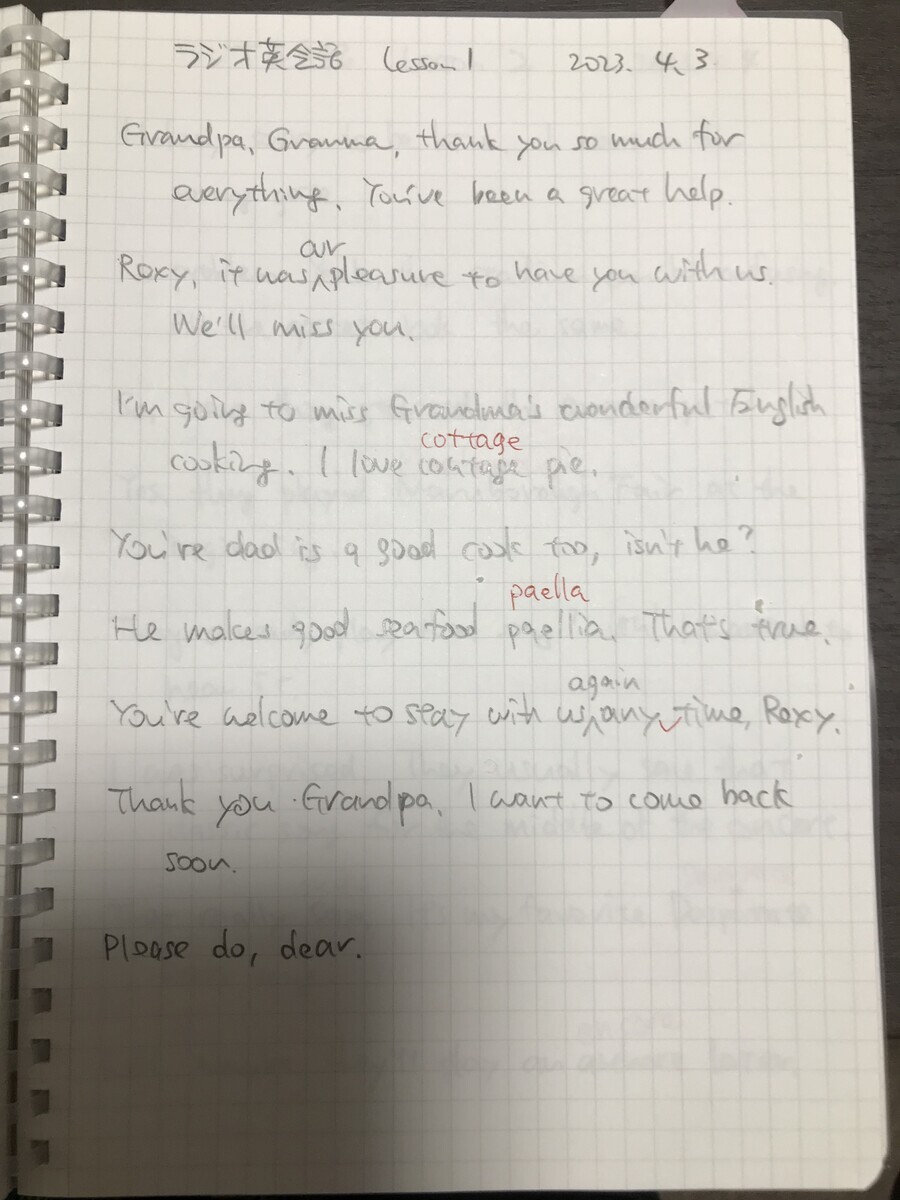 ラジオ英会話 Lesson 1 2023. 4. 3
Grandpa, Granma, thank you so much for
everything. You've been a great help.
our
Roxy, it was pleasure to have you with us.
We'll miss you.
I'm going to miss Grandma's wonderful English
cottage
cooking. I love coutage pie.
You're dad is a good cook too, isn't he?
paella
He makes good seafood paellia. That's true.
again
You're welcome to stay with us any time, Roxy.
Thank you Grandpa. I want to come back
soon.
Please do, dear.